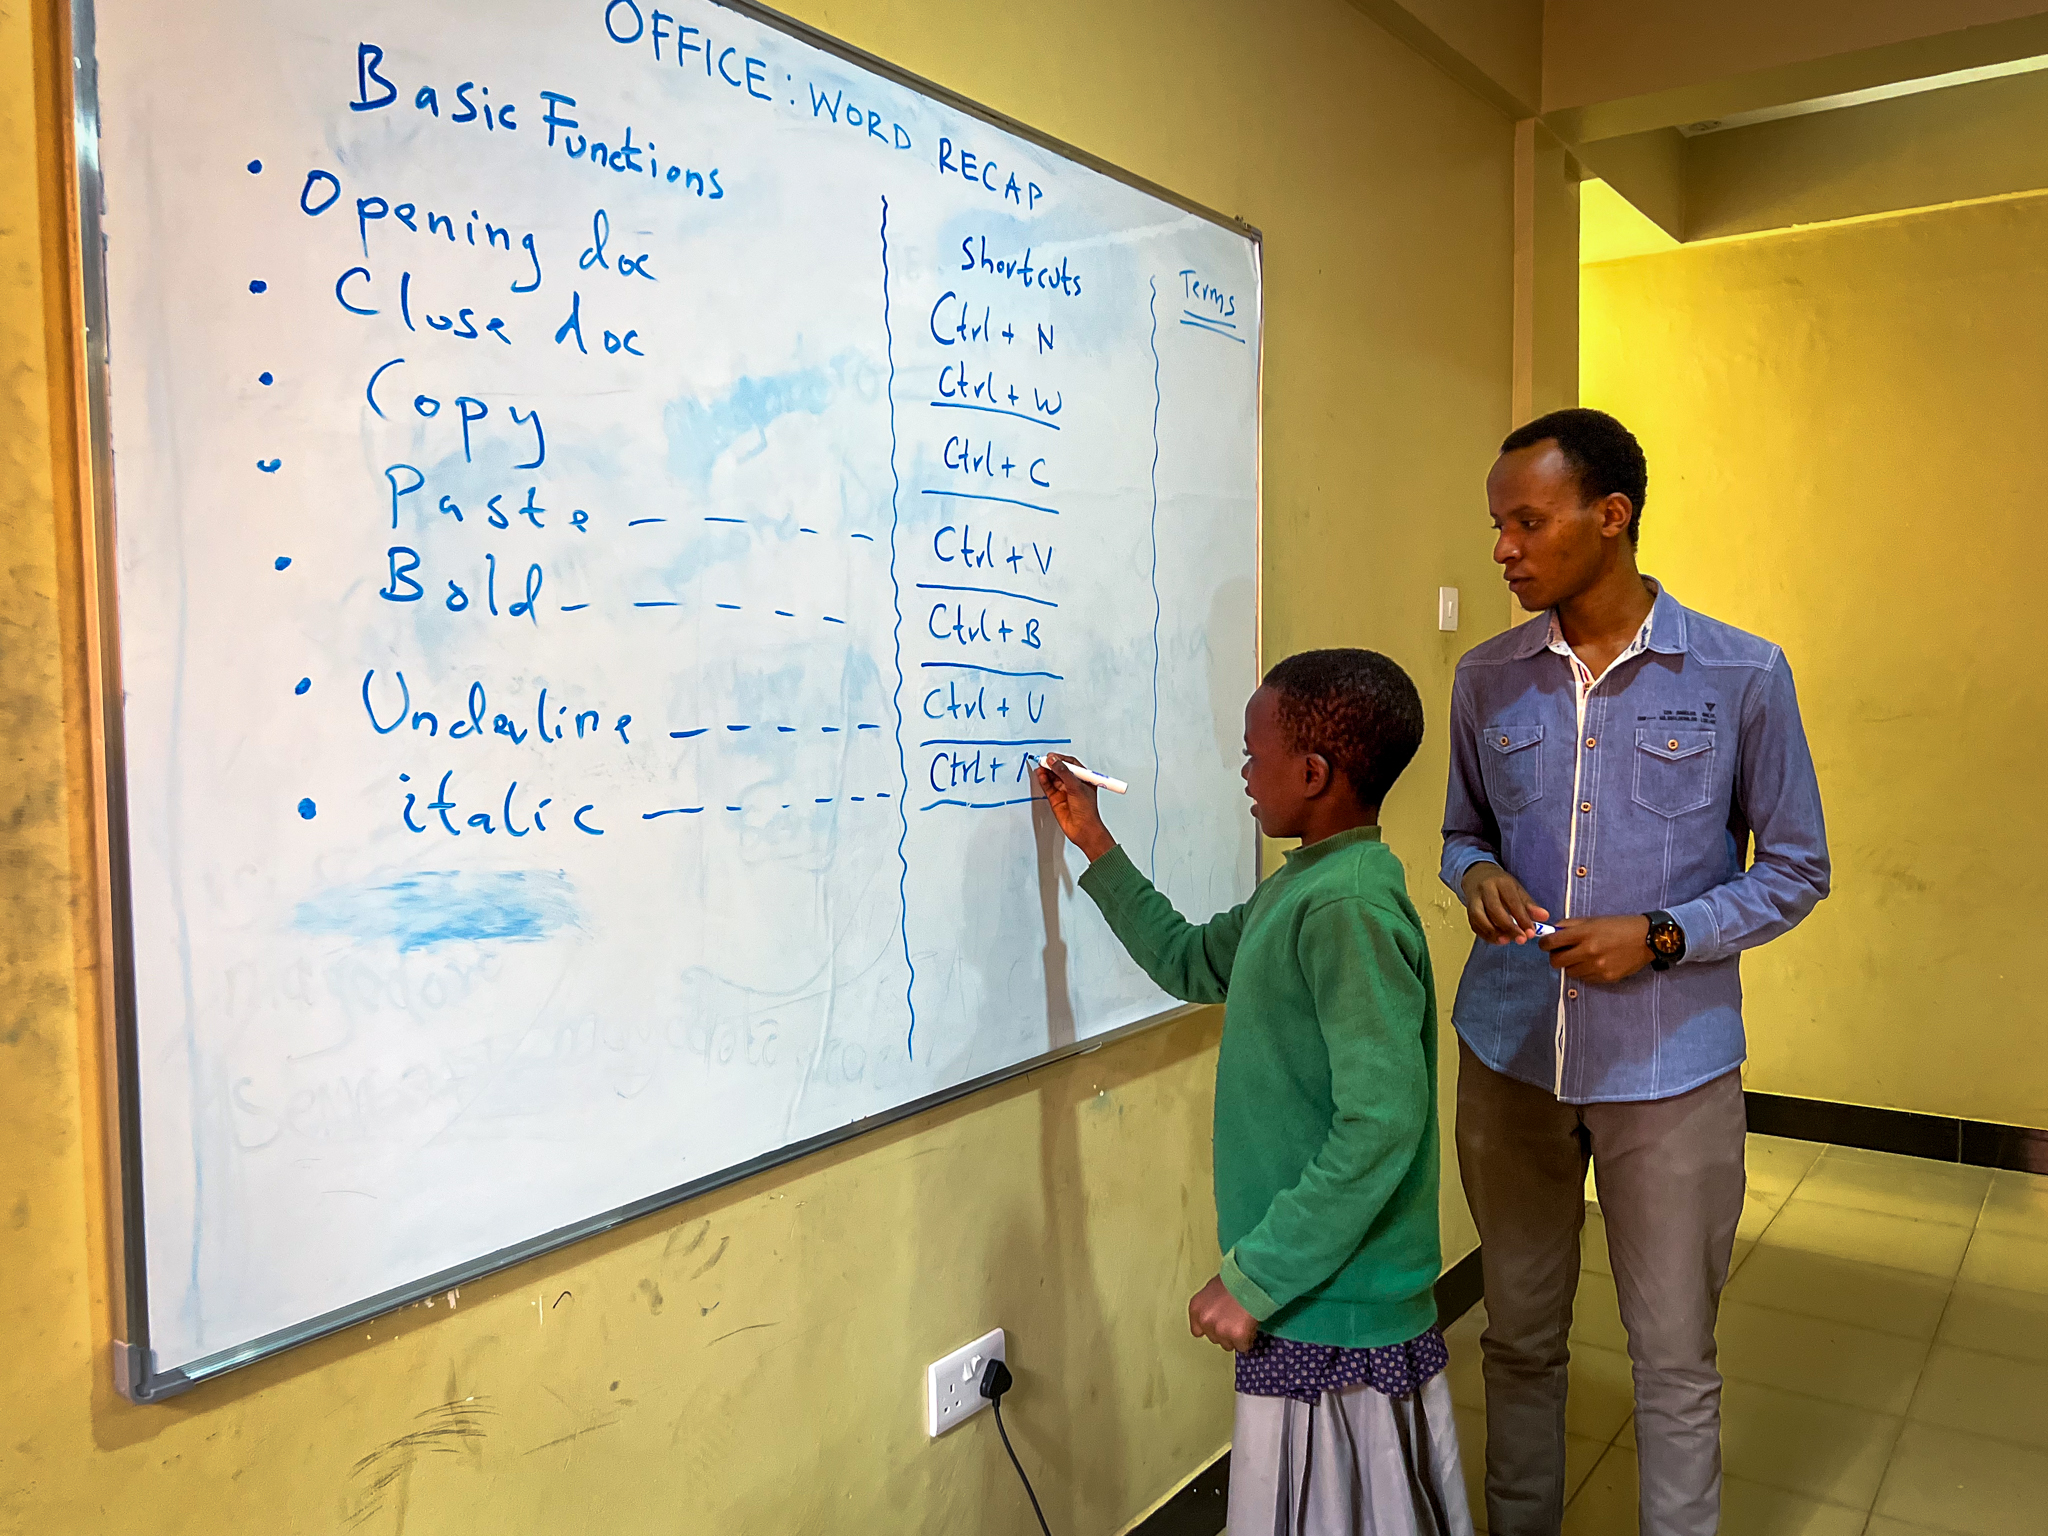 OFFICE: WORD RECAP
Basic Functions
• Opening doc
• Close doc
• Copy
• Paste – – – –
• Bold – – – – –
• Underline – – – – –
• italic – – – – – –
Shortcuts
Ctrl + N
Ctrl + W
Ctrl + C
Ctrl + V
Ctrl + B
Ctrl + U
Ctrl +
Terms